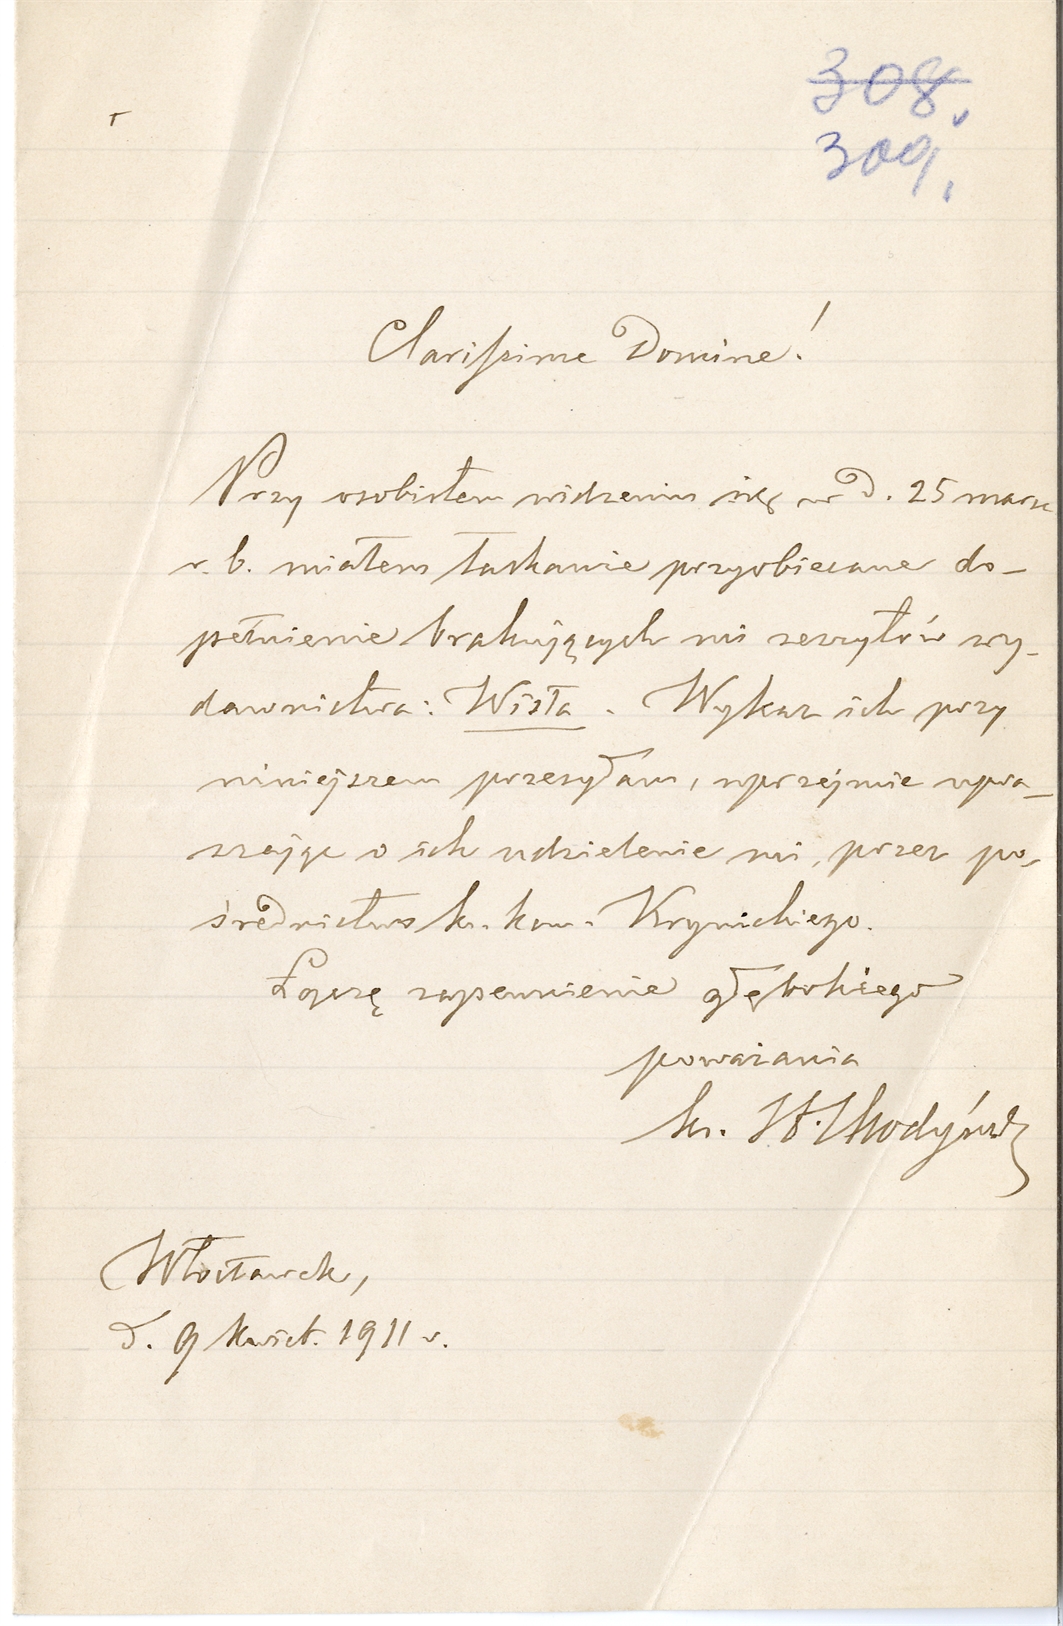 308.
309.
Clarissime Domine!
Przy osobistem widzeniu się w d. 25 marca
r. b. miałem łaskawie przyobiecane do-
pełnienie brakujących mi zeszytów wy-
dawnictwa: Wisła. Wykaz ich przy
niniejszem przesyłam, uprzejmie upra-
szając o ich udzielenie mi, przez po-
średnictwo ks. kan. Krynickiego.
Łączę zapewnienie głębokiego
poważania
ks. St. Chodyński
Włocławek,
d. 9 kwiet. 1911 r.